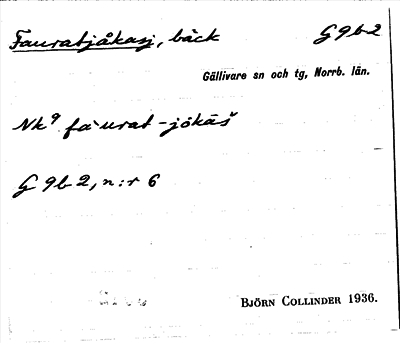 Fauratjåkasj, bäck G 9 b 2
Gällivare sn och tg, Norrb. län.
Nk⁹ fàurat-jåkāš
G 9b 2, n:r 6
BJÖRN COLLINDER 1936.